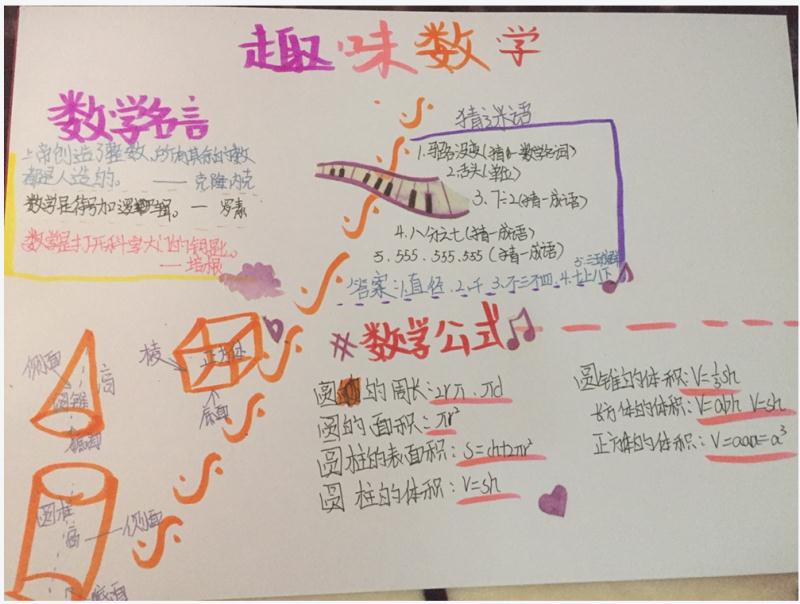 趣味数学
数学名言
上帝创造了整数、所有其余的数
都是人造的。 —— 克隆内克
数学是符号加逻辑。 — 罗素
数学是打开科学大门的钥匙。
—— 培根
猜谜语
1.
没变(猜一数学名词)
2.舌头(单位)
3. 7÷2(猜一成语)
4.八分之七(猜一成语)
5.555.555.555(猜一成语)
答案:1.直径.2.千.3.不三不四.4.七上八下
5.三五成群
侧面
高
圆锥
底面
棱
正方体
底面
圆柱
高
侧面
底面
#数学公式
圆的周长:2rπ.πd
圆的面积:πr²
圆柱的表面积:S=ch+2πr²
圆柱的体积:V=sh
圆锥的体积:V=⅓sh
长方体的体积:V=abh V=sh
正方体的体积:V=aaa=a³